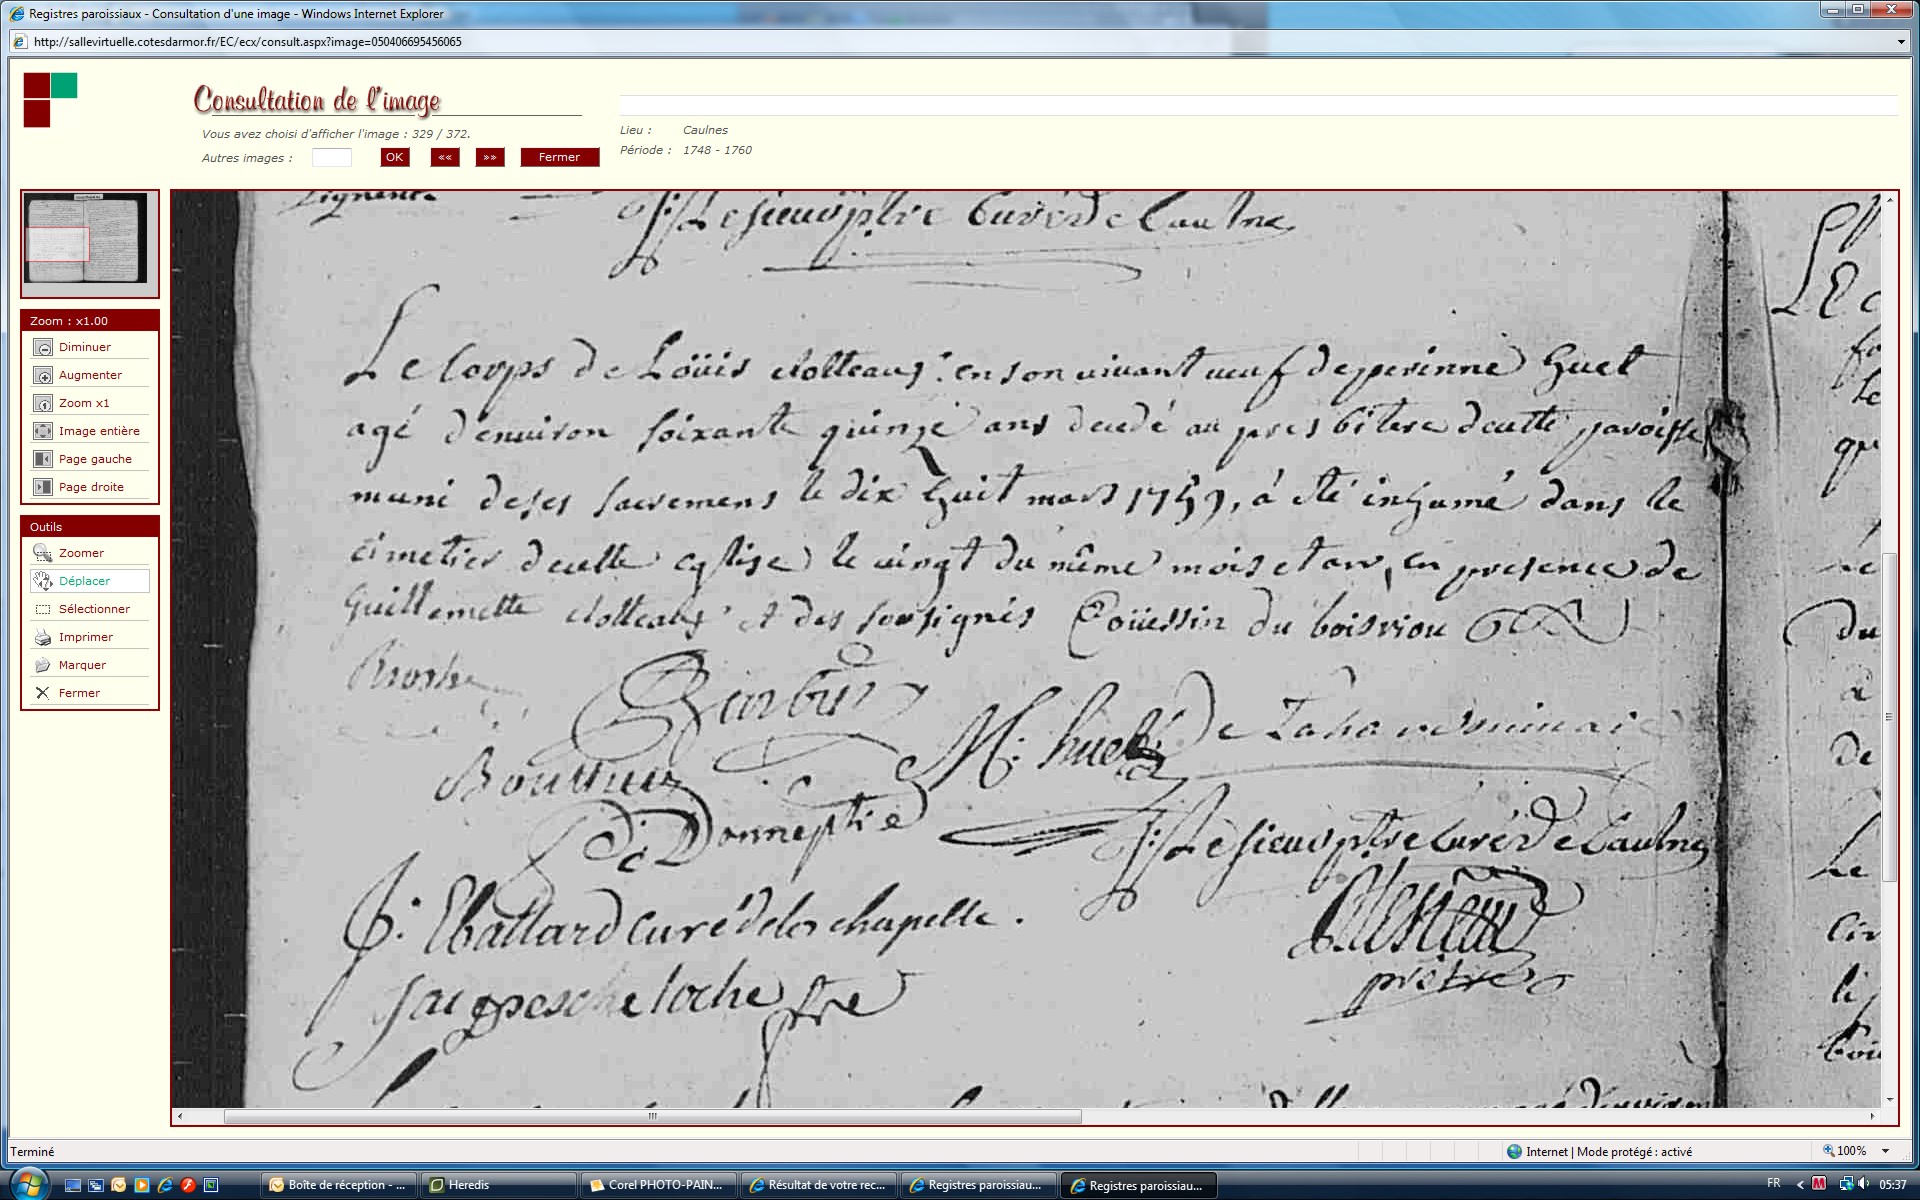 Registres paroissiaux - Consultation d'une image - Windows Internet Explorer
http://sallevirtuelle.cotesdarmor.fr/EC/ecx/consult.aspx?image=050406695456065
Consultation de l'image
Vous avez choisi d'afficher l'image : 329 / 372.
Autres images :
OK
««
»»
Fermer
Lieu : Caulnes
Période : 1748 - 1760
Zoom : x1.00
Diminuer
Augmenter
Zoom x1
Image entière
Page gauche
Page droite
Outils
Zoomer
Déplacer
Sélectionner
Imprimer
Marquer
Fermer
Le sieur ptre Curé de Caulne
Le Corps de Loüis clolteaux en son vivant veuf de perinne huet
agé d'environ soixante quinze ans decedé au presbitere de cette paroisse
muni de ses sacremens le dix huit mars 1759, á eté inhumé dans le
cimetier de cette eglise le vingt du même mois et an, en presence de
Guillemette clolteaux et des sousignés Coüessin du boisriou
M: huet
de
J: Le sieur ptre Curé de Caulne
J: Eballard curé de la chapelle .
Jacques cheloche ptre
prêtre
Terminé
Internet | Mode protégé : activé
100%
Boîte de réception - ...
Heredis
Corel PHOTO-PAIN...
Résultat de votre rec...
Registres paroissiau...
Registres paroissiau...
FR
05:37